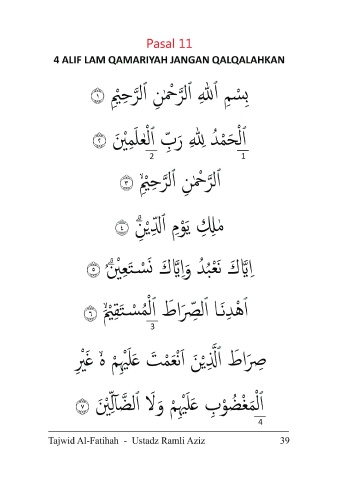 Pasal 11
4 ALIF LAM QAMARIYAH JANGAN QALQALAHKAN
بِسْمِ ٱللهِ ٱلرَّحْمٰنِ ٱلرَّحِيْمِ ۝١
ٱلْحَمْدُ لِلهِ رَبِّ ٱلْعٰلَمِيْنَ ۝٢
2 1
ٱلرَّحْمٰنِ ٱلرَّحِيْمِۙ ۝٣
مٰلِكِ يَوْمِ ٱلدِّيْنِۗ ۝٤
اِيَّاكَ نَعْبُدُ وَاِيَّاكَ نَسْتَعِيْنُۗ ۝٥
اَهْدِنَا ٱلصِّرَاطَ ٱلْمُسْتَقِيْمَۙ ۝٦
3
صِرَاطَ ٱلَّذِيْنَ اَنْعَمْتَ عَلَيْهِمْ ەۙ غَيْرِ
ٱلْمَغْضُوْبِ عَلَيْهِمْ وَلَا ٱلضَّآلِّيْنَ ۝٧
4
Tajwid Al-Fatihah - Ustadz Ramli Aziz 39